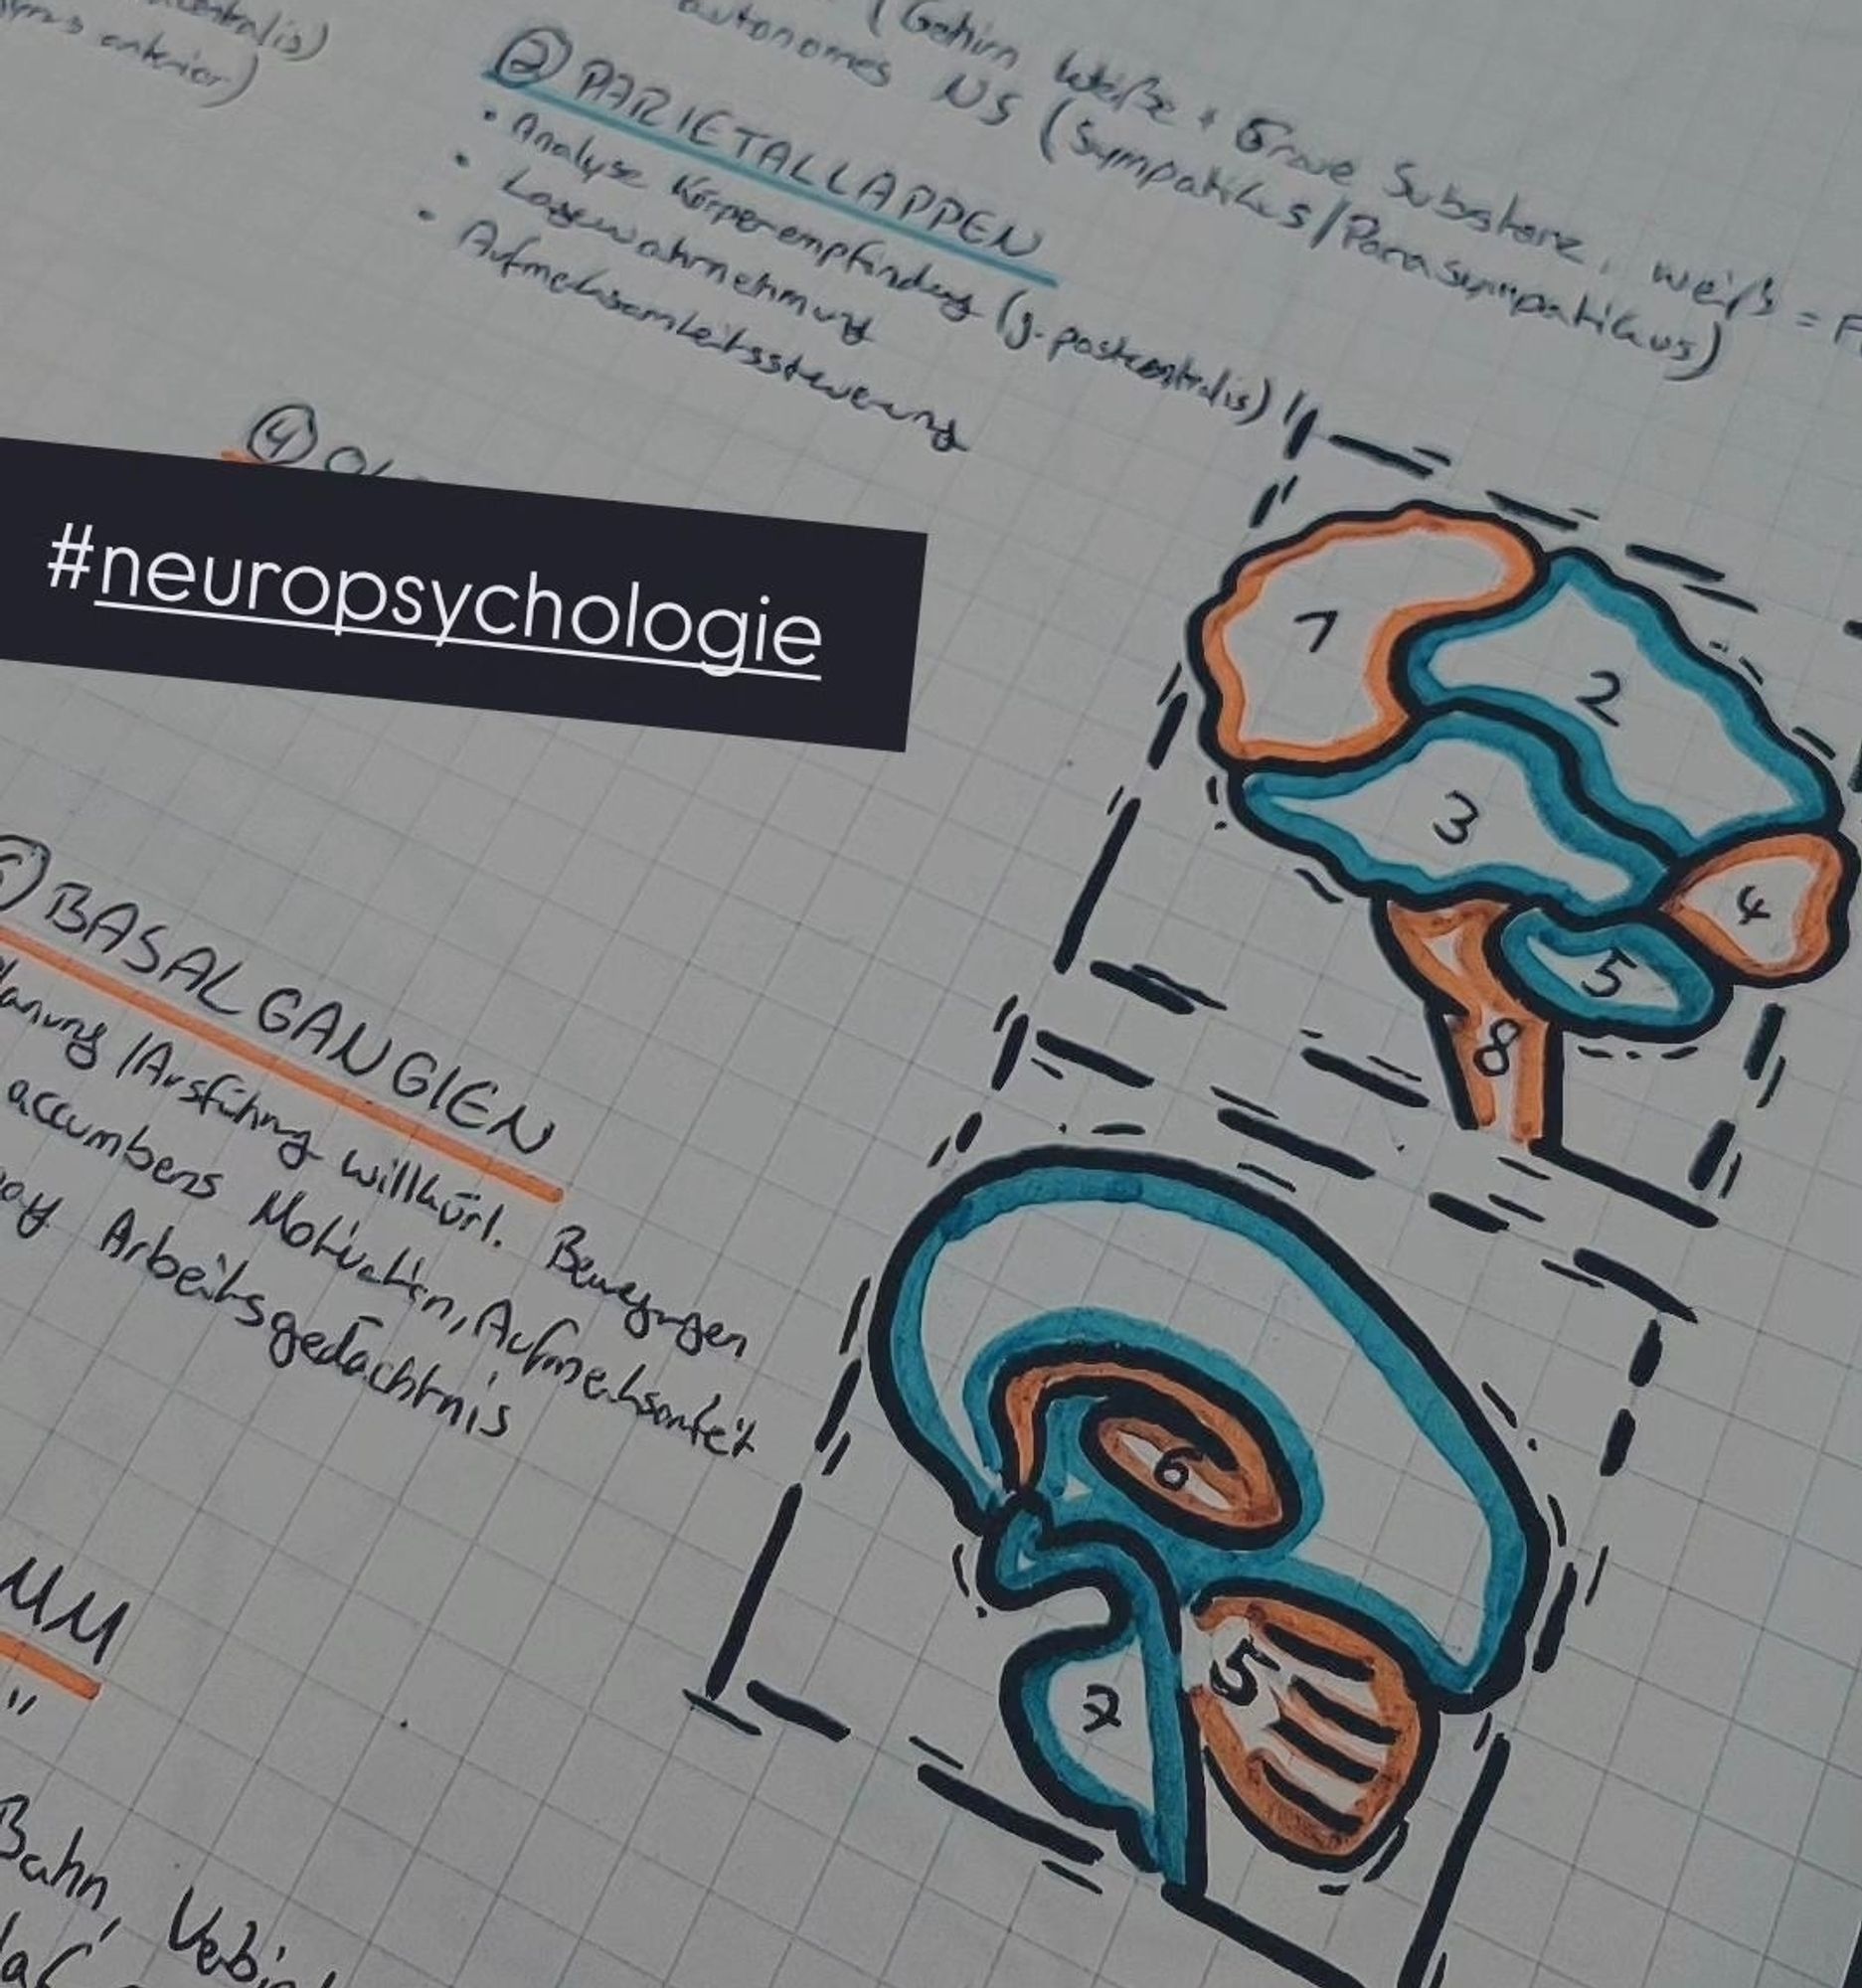 (Gehirn weiße + Graue Substanz, weiß = F
autonomes NS (Sympatikus/Parasympatikus)
anterior)
② PARIETALLAPPEN
• Analyse Körperempfindung (g. postcentralis)
• Lagewahrnehmung
• Aufmerksamkeitssteuerung
④
#neuropsychologie
BASALGANGIEN
lanung / Ausführung willkürl. Bewegungen
accumbens Motivation, Aufmerksamkeit
Arbeitsgedächtnis
MM
"
Bahn, Verbin
1
2
3
4
5
8
6
5
7